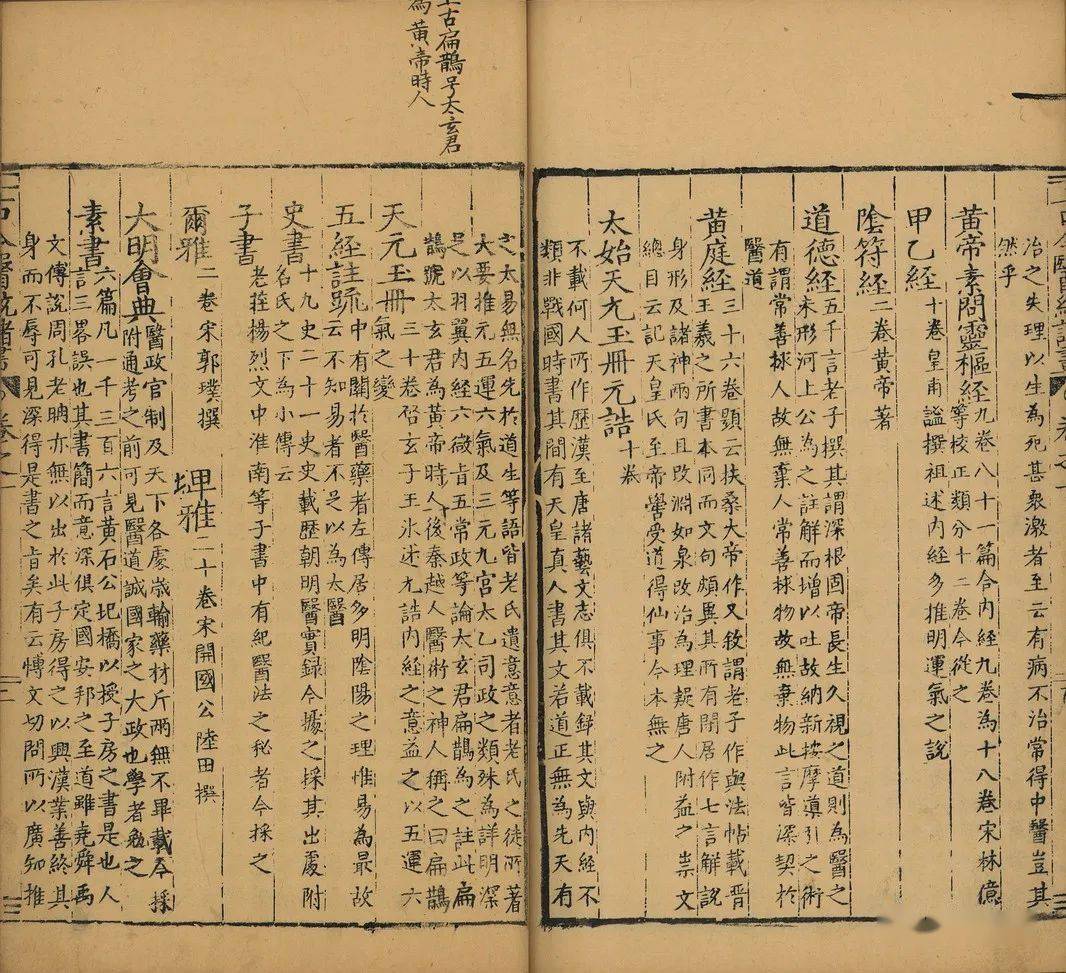 治之失理以生為死甚衆激者至云有病不治常得中醫豈其
然乎
黃帝素問靈樞經九卷八十一篇合内經九卷為十八卷宋林億
等校正類分十二卷今從之
甲乙經十卷皇甫謐撰祖述内經多推明運氣之說
陰符經二卷黃帝著
道德經五千言老子撰其謂深根固帝長生久視之道則為醫之
未形河上公為之註解而增以吐故納新按摩導引之術
有謂常善捄人故無棄人常善捄物故無棄物此言皆深契於
醫道
黃庭經三十六卷題云扶桑大帝作又敘謂老子作與法帖載晋
王羲之所書本同而文句頗異其所有閒居作七言解說
身形及諸神两句且改淵如泉改治為理疑唐人附益之祟文
總目云記天皇氏至帝嚳受道得仙事今本無之
太始天元玉冊元誥十卷
不載何人所作歷漢至唐諸藝文志俱不載錄其文與内經不
類非戰國時書其間有天皇真人書其文若道正無為先天有
上古扁鵲号太玄君
為黃帝時人
之太易無名先於道生等語皆老氏遺意意者老氏之徒所著
大要推元五運六氣及三元九宫太乙司政之類殊為詳明深
足以羽翼内經六微旨五常政等論太玄君扁鵲為之註此扁
鵲號太玄君為黃帝時人後秦越人醫術之神人稱之曰扁鵲
天元玉冊三十卷啓玄子王氷述尤誥内經之意益之以五運六
氣之變
五經註疏中有關於醫藥者左傳居多明陰陽之理惟易為最故
云不知易者不足以為太醫
史書十九史二十一史史載歷朝明醫實録今據之採其出處附
名氏之下為小傳云
子書老荘楊列文中淮南等子書中有紀醫法之秘者今採之
爾雅二卷宋郭璞撰
埤雅二十卷宋開國公陸田撰
大明會典醫政官制及天下各處歳輸藥材斤两無不畢載今採
附通考之前可見醫道誠國家之大政也學者勉之
素書六篇凡一千三百六言黃石公圯橋以授子房之書是也人
言三畧誤也其書簡而意深俱定國安邦之至道雖堯舜禹
文傳說周孔老聃亦無以出於此子房得之以興漢業善終其
身而不辱可見深得是書之旨矣有云愽文切問所以廣知推